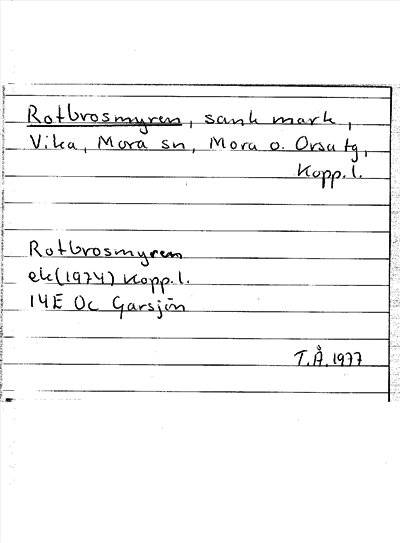 Rotbrosmyren, sank mark,
Vika, Mora sn, Mora o. Orsa tg,
Kopp. l.
Rotbrosmyren
ek (1974) Kopp. l.
14E 0c Garsjön
T.Å. 1977